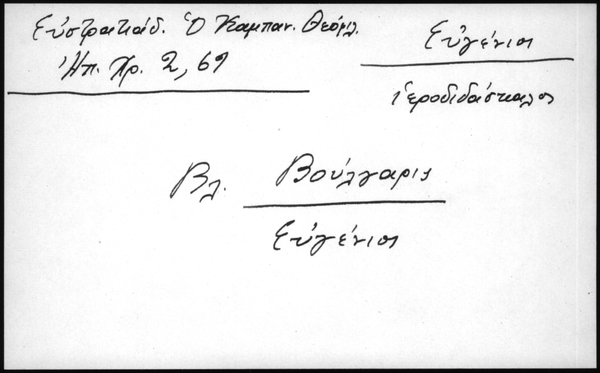 Εὐστρατιάδ. Ὁ Καμπαν. Θεόφιλ.
Ἠπ. Χρ. 2, 69
Εὐγένιος
ἱεροδιδάσκαλος
Βλ. Βούλγαρις
Εὐγένιος